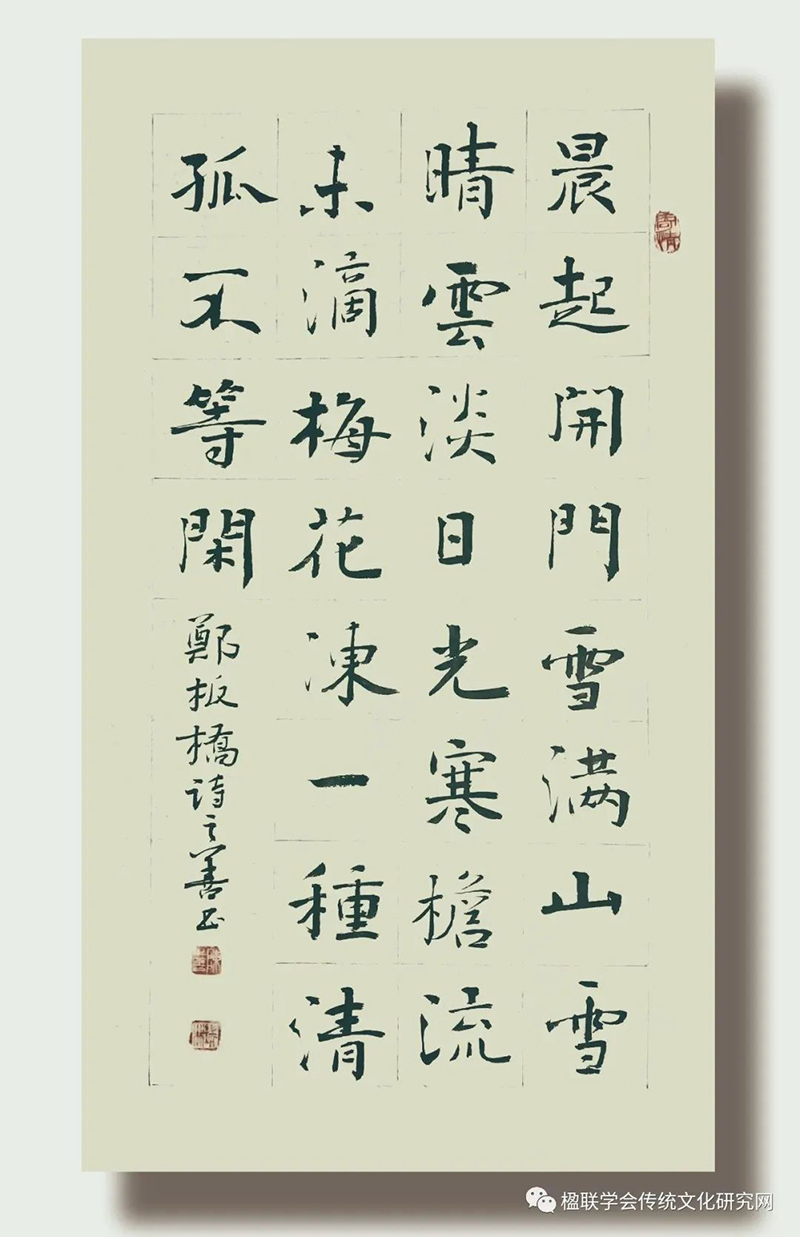 晨起開門雪满山雪
晴雲淡日光寒檐流
未滴梅花凍一種清
孤不等閑
鄭板橋詩之善书
楹联学会传统文化研究网